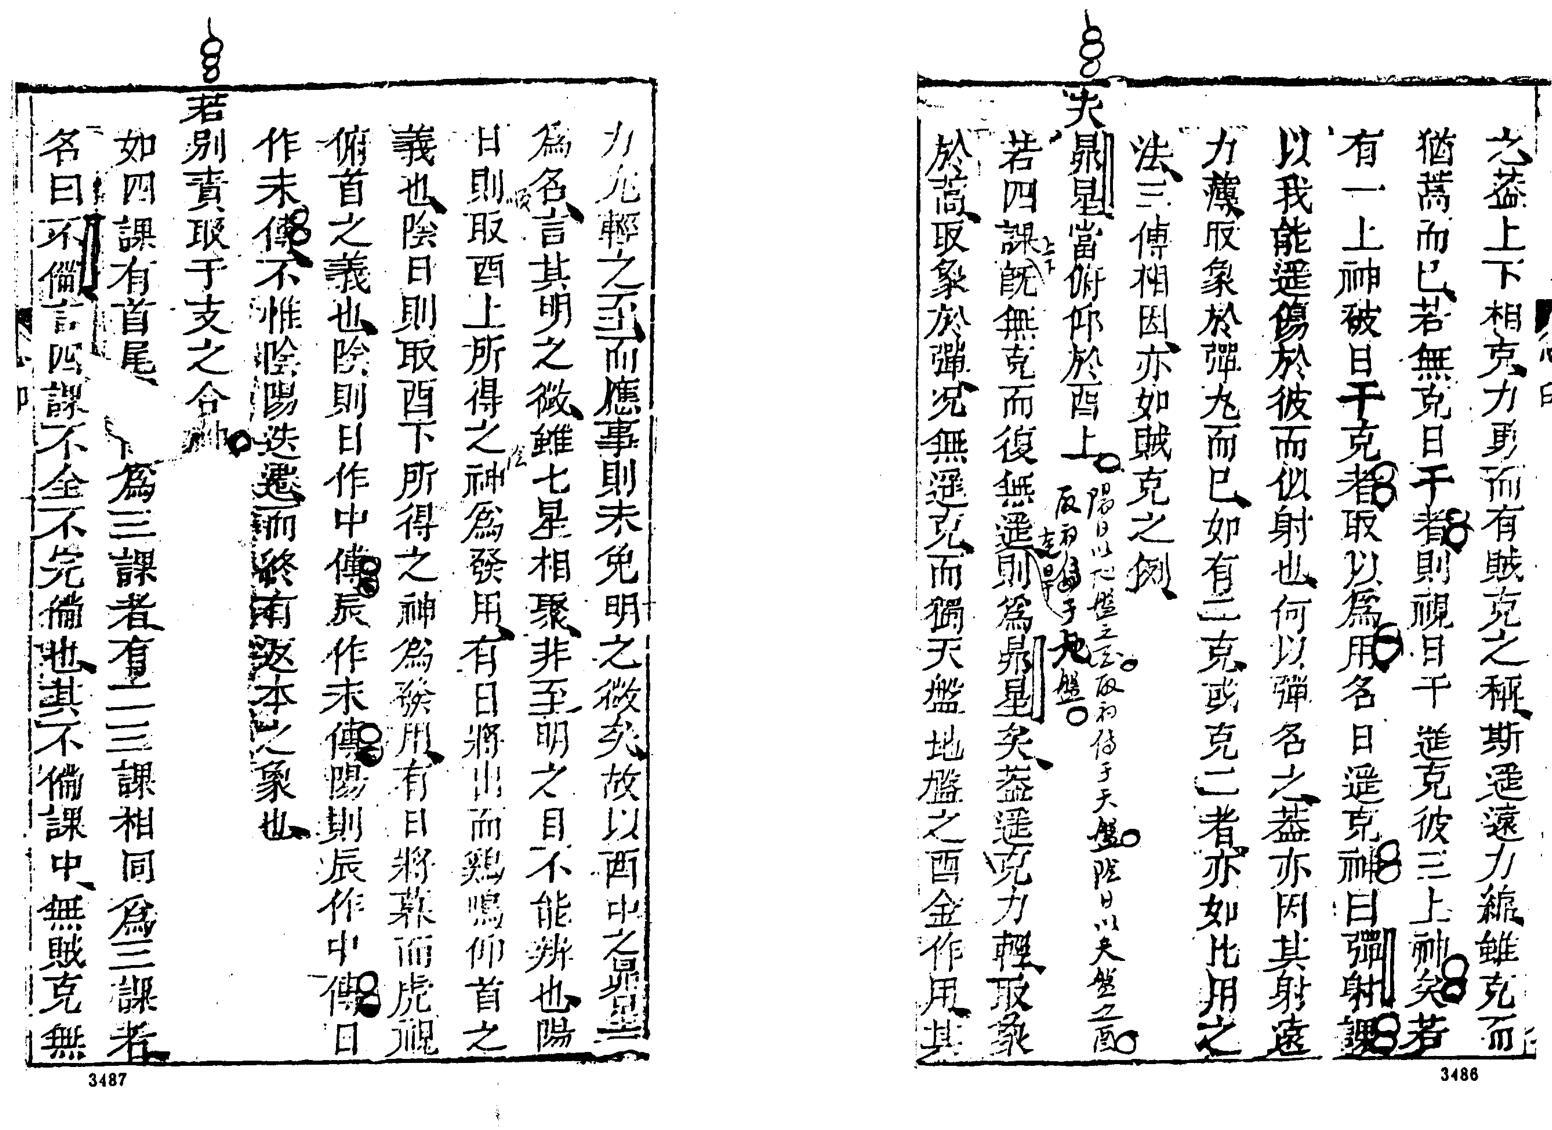 之葢上下相克力勇而有賊克之稱斯遥遠力縮雖克而
猶蒿而已若無克日干者則視日干遥克彼三上神矣若
有一上神破日干克者取以爲用名日遥克神曰彈射課
以我能遥傷於彼而似射也何以彈名之葢亦因其射遠
力薄取象於彈丸而已如有二克或克二者亦如比用之
法三傳相因亦如賊克之例
夫昴星當俯仰於酉上
陽日以地盤之酉取初傳于天盤陰日以天盤之酉
取初傳于地盤
若四課既無克而復無遥則爲昴星矣葢遥克力輕取象
上下
於蒿取象於彈况無遥克而獨天盤地盤之酉金作用其
力尤輕之至而應事則未免明之微矣故以酉中之昴星
爲名言其明之微雖七星相聚非至明之目不能辨也陽
日則取酉上所得之神爲發用有日將出而鷄鳴仰首之
義也陰日則取酉下所得之神爲發用有日將暮而虎視
俯首之義也陰則日作中傳辰作末傳陽則辰作中傳日
作末傳不惟陰陽迭遷而終有返本之象也
若別責取于支之合神
如四課有首尾爲三課者有二三課相同爲三課者
名曰不偹言四課不全不完偹也其不偹課中無賊克無
3487
3486